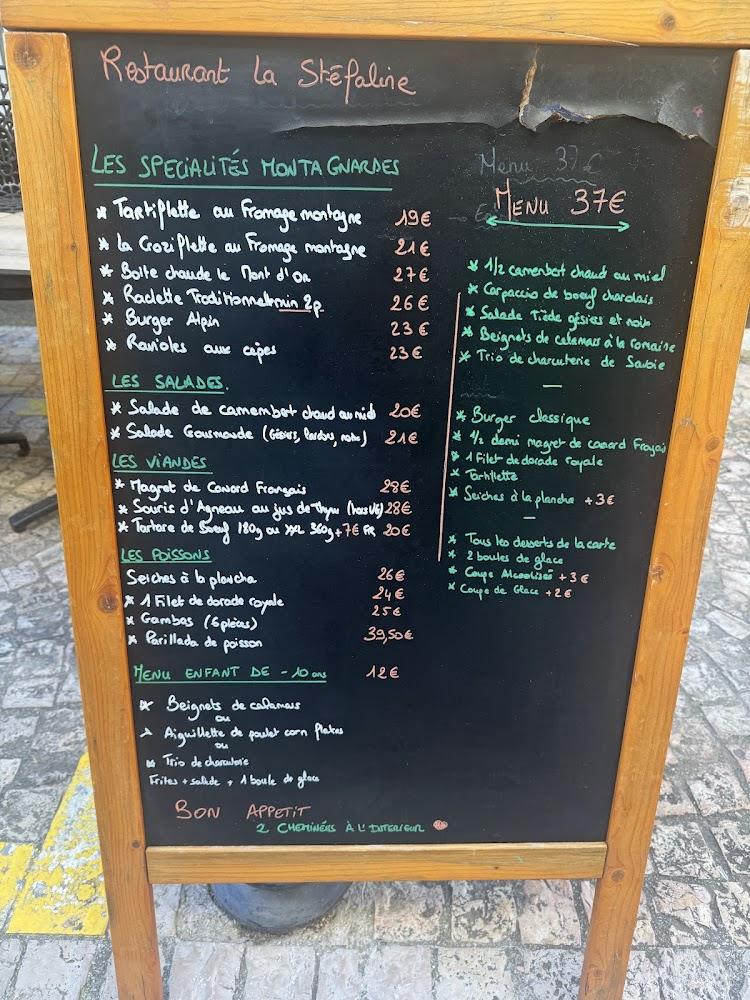 Restaurant La Stéfaline
LES SPECIALITÉS MONTAGNARDES
* Tartiflette au Fromage montagne 19€
* La Croziflette au Fromage montagne 21€
* Boite chaude le Mont d'Or 27€
* Raclette Traditionnelle min 2p. 26€
* Burger Alpin 23€
* Ravioles aux cèpes 23€
LES SALADES.
* Salade de camembert chaud au miel 20€
* Salade Gourmande (Gésiers, lardons, noix) 21€
LES VIANDES
* Magret de Canard Français 28€
* Souris d'Agneau au jus de Thym (hors UE) 28€
* Tartare de Boeuf 180g ou XXL 360g +7€ FR 20€
LES POISSONS
Seiches à la plancha 26€
* 1 Filet de dorade royale 24€
* Gambas (6 pièces) 25€
* Parillada de poisson 39,50€
MENU ENFANT DE -10 ans 12€
* Beignets de calamars
ou
* Aiguillette de poulet corn flakes
ou
* Trio de charcuterie
Frites + salade + 1 boule de glace
BON APPETIT
2 CHEMINÉES À L'INTERIEUR
Menu 37€
MENU 37€
* 1/2 camembert chaud au miel
* Carpaccio de boeuf charolais
* Salade Tiède gésiers et noix
* Beignets de calamars à la romaine
* Trio de charcuterie de Savoie
—
* Burger classique
* 1/2 demi magret de canard Français
* 1 Filet de dorade royale
* Tartiflette
* Seiches à la plancha +3€
—
* Tous les desserts de la carte
* 2 boules de glace
* Coupe Alcoolisée +3€
* Coupe de Glace +2€